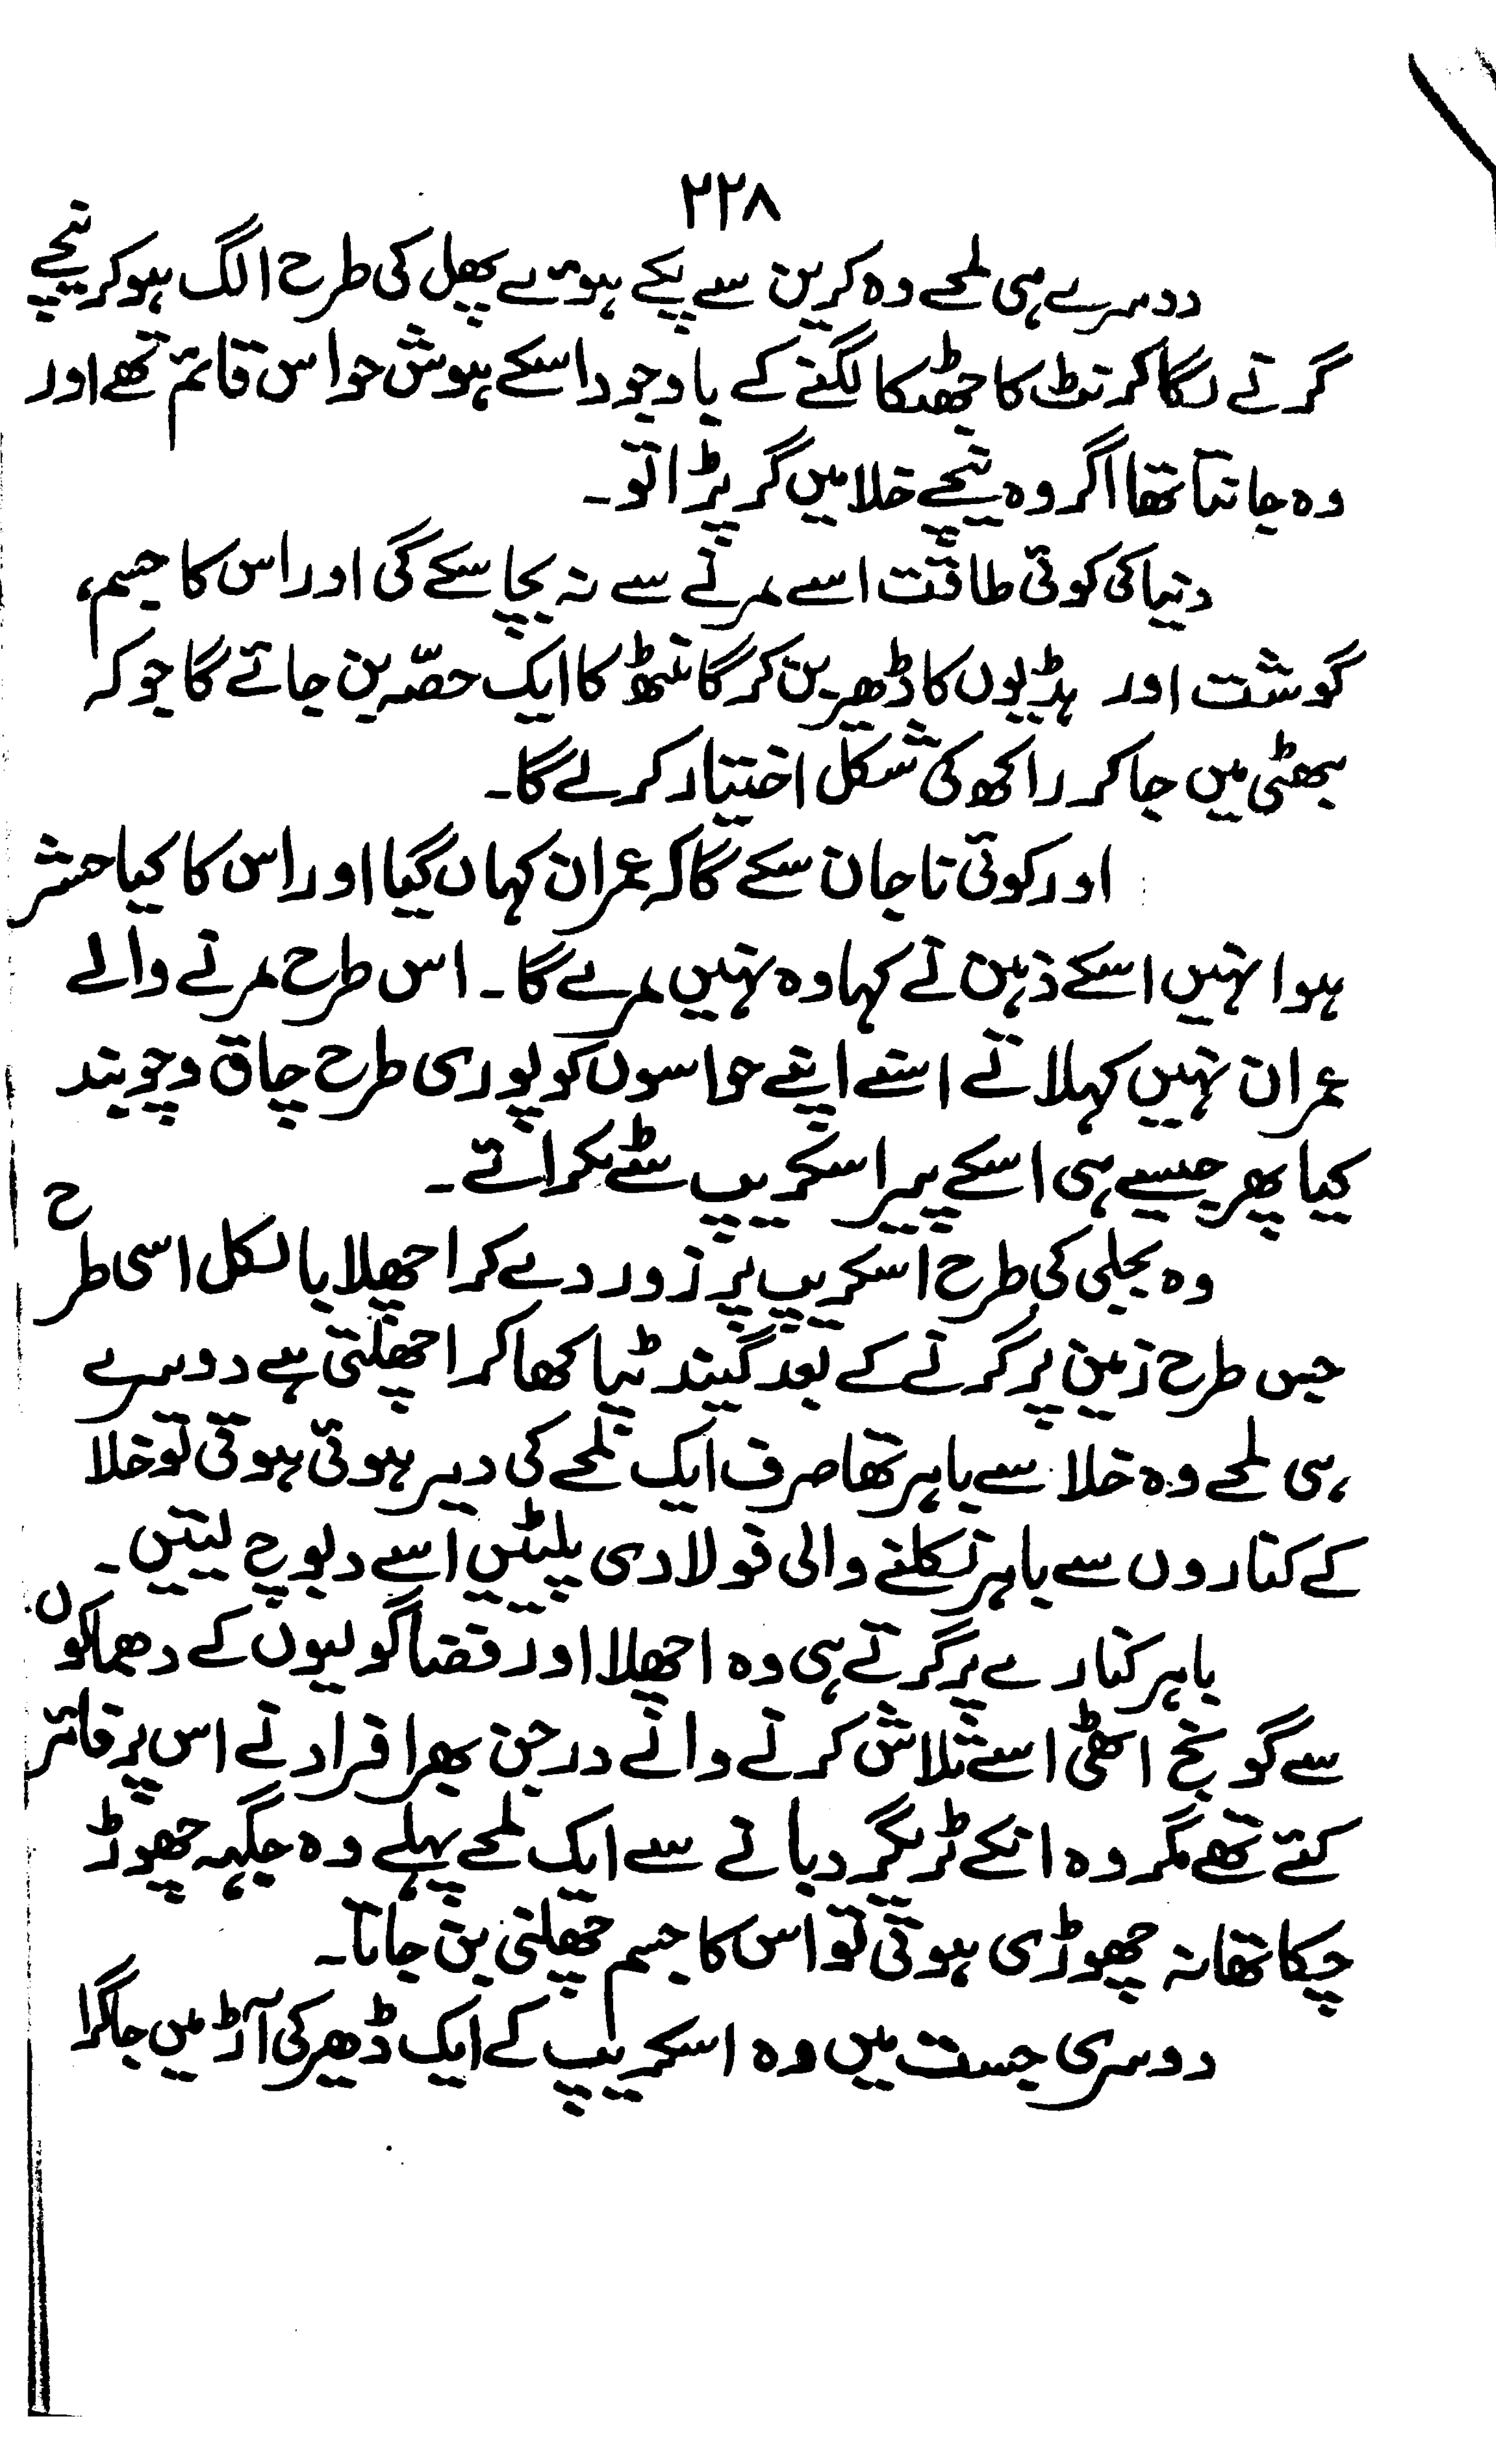 ۲۲۸
دوسرے ہی لمحے وہ کرین سے پکے ہوئے پھل کی طرح الگ ہو کر نیچے
گرنے لگا کرنٹ کا جھٹکا لگنے کے باوجود اسکے ہوش حواس قائم تھے اور
وہ جانتا تھا اگر وہ نیچے خلا میں گر پڑا تو۔
دنیا کی کوئی طاقت اسے مرنے سے نہ بچا سکے گی اور اس کا جسم،
گوشت اور ہڈیوں کا ڈھیر بن کر گانٹھ کا ایک حصّہ بن جائے گا جو کہ
بھٹی میں جا کر راکھ کی شکل اختیار کر لے گا۔
اور کوئی نا جان سکے گا کہ عمران کہاں گیا اور اس کا کیا حشر
ہوا نہیں اسکے ذہن نے کہا وہ نہیں مرے گا۔ اس طرح مرنے والے
عمران نہیں کہلاتے اسنے اپنے حواسوں کو پوری طرح چاق و چوبند
کیا پھر جیسے ہی اسکے پیر اسکریپ سے ٹکرائے۔
وہ بجلی کی طرح اسکریپ پر زور دے کر اچھلا بالکل اسی طرح
جس طرح زمین پر گرنے کے بعد گیند ٹپا کھا کر اچھلتی ہے دوسرے
ہی لمحے وہ خلا سے باہر تھا صرف ایک لمحے کی دیر ہوئی ہوتی تو خلا
کے کناروں سے باہر نکلنے والی فولادی پلیٹیں اسے دبوچ لیتیں۔
باہر کنارے پر گرتے ہی وہ اچھلا اور فضا گولیوں کے دھماکوں
سے گونج اٹھی اسے تلاش کرنے والے درجن بھر افراد نے اس پر فائر
کئے تھے مگر وہ انکے ٹریگر دبانے سے ایک لمحے پہلے وہ جگہہ چھوڑ
چکا تھا نہ چھوڑی ہوتی تو اس کا جسم چھلنی بن جاتا۔
دوسری جست میں وہ اسکریپ کے ایک ڈھیر کی آڑ میں جا گرا